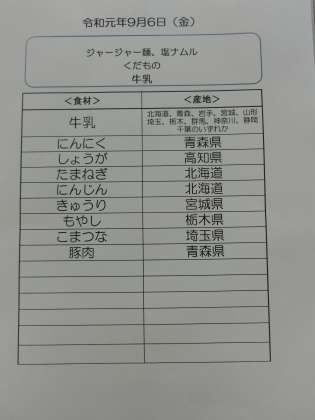 令和元年9月6日（金）
ジャージャー麺、塩ナムル
くだもの
牛乳
＜食材＞ ＜産地＞
牛乳 北海道、青森、岩手、宮城、山形
埼玉、栃木、群馬、神奈川、静岡
千葉のいずれか
にんにく 青森県
しょうが 高知県
たまねぎ 北海道
にんじん 北海道
きゅうり 宮城県
もやし 栃木県
こまつな 埼玉県
豚肉 青森県